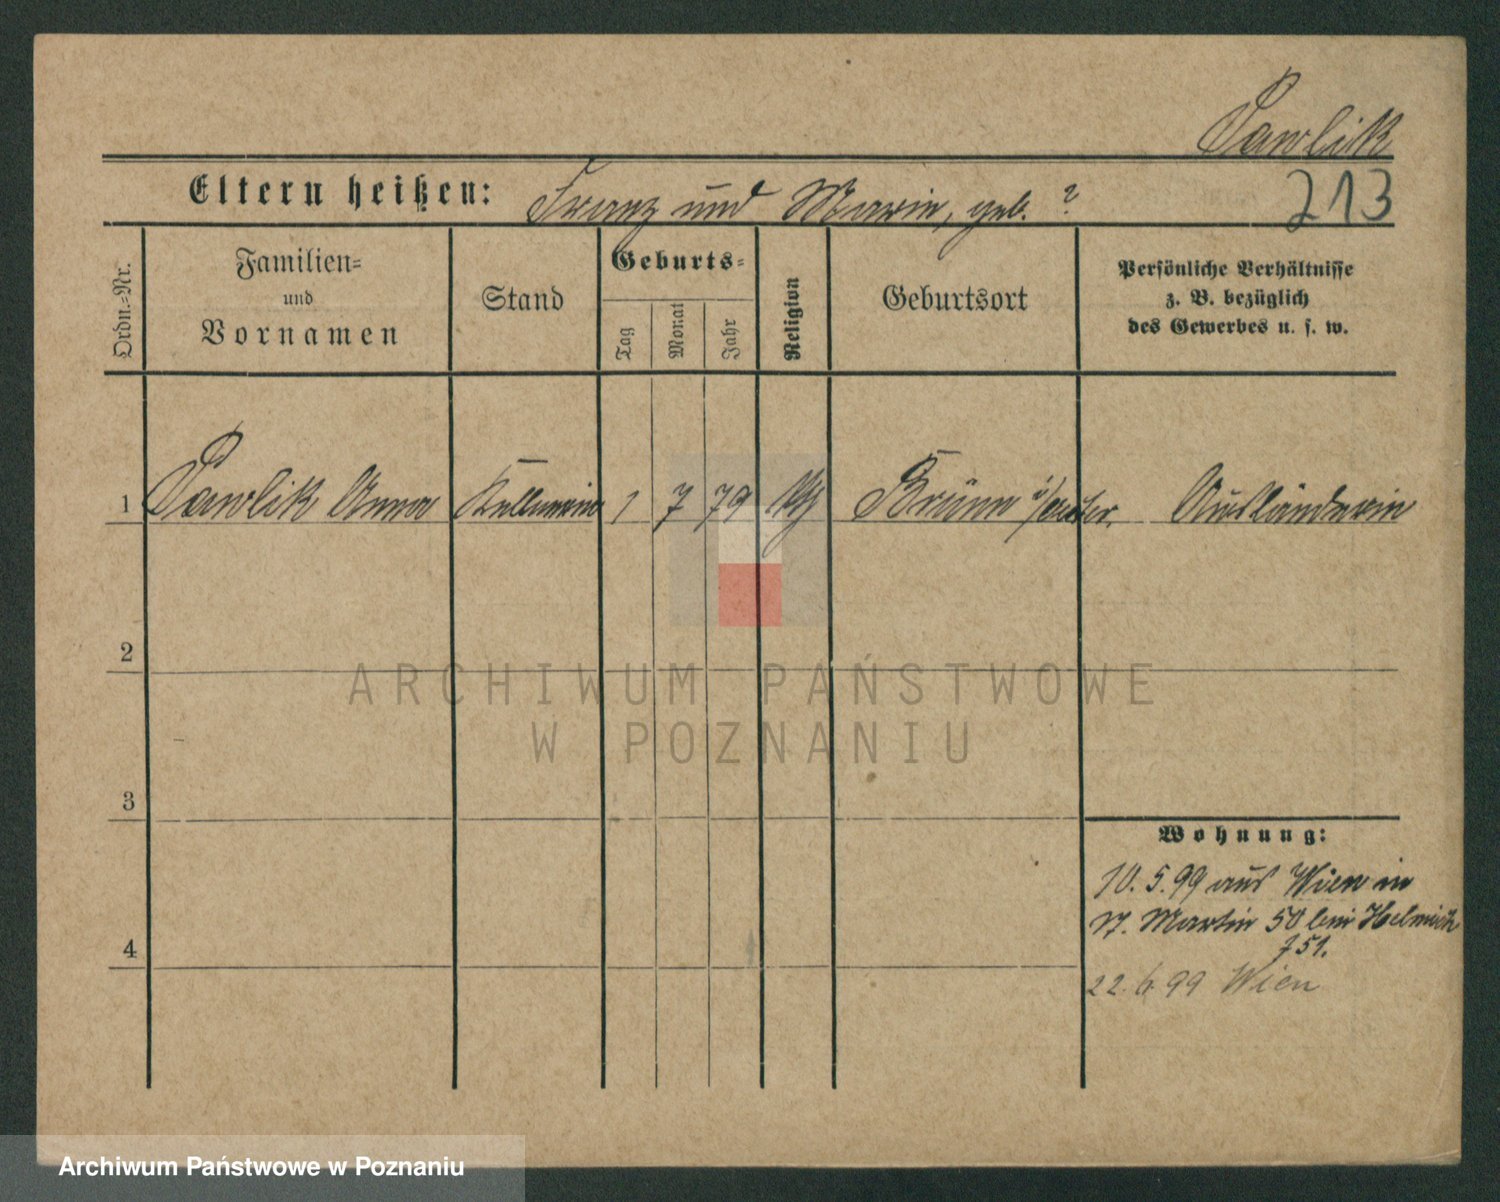 Pawlik
Eltern heißen: Franz und Marie, geb. ?
213
Ordn.-Nr.
Familien-
und
Vornamen
Stand
Geburts-
Tag
Monat
Jahr
Religion
Geburtsort
Persönliche Verhältnisse
z. B. bezüglich
des Gewerbes u. s. w.
1 Pawlik Anna Kellnerin 1 7 79 Brünn Ausländerin
2
ARCHIWUM PAŃSTWOWE
W POZNANIU
3
Wohnung:
10. 5. 99 aus Wien in
St. Martin 50 bei
4
22. 6. 99 Wien
Archiwum Państwowe w Poznaniu